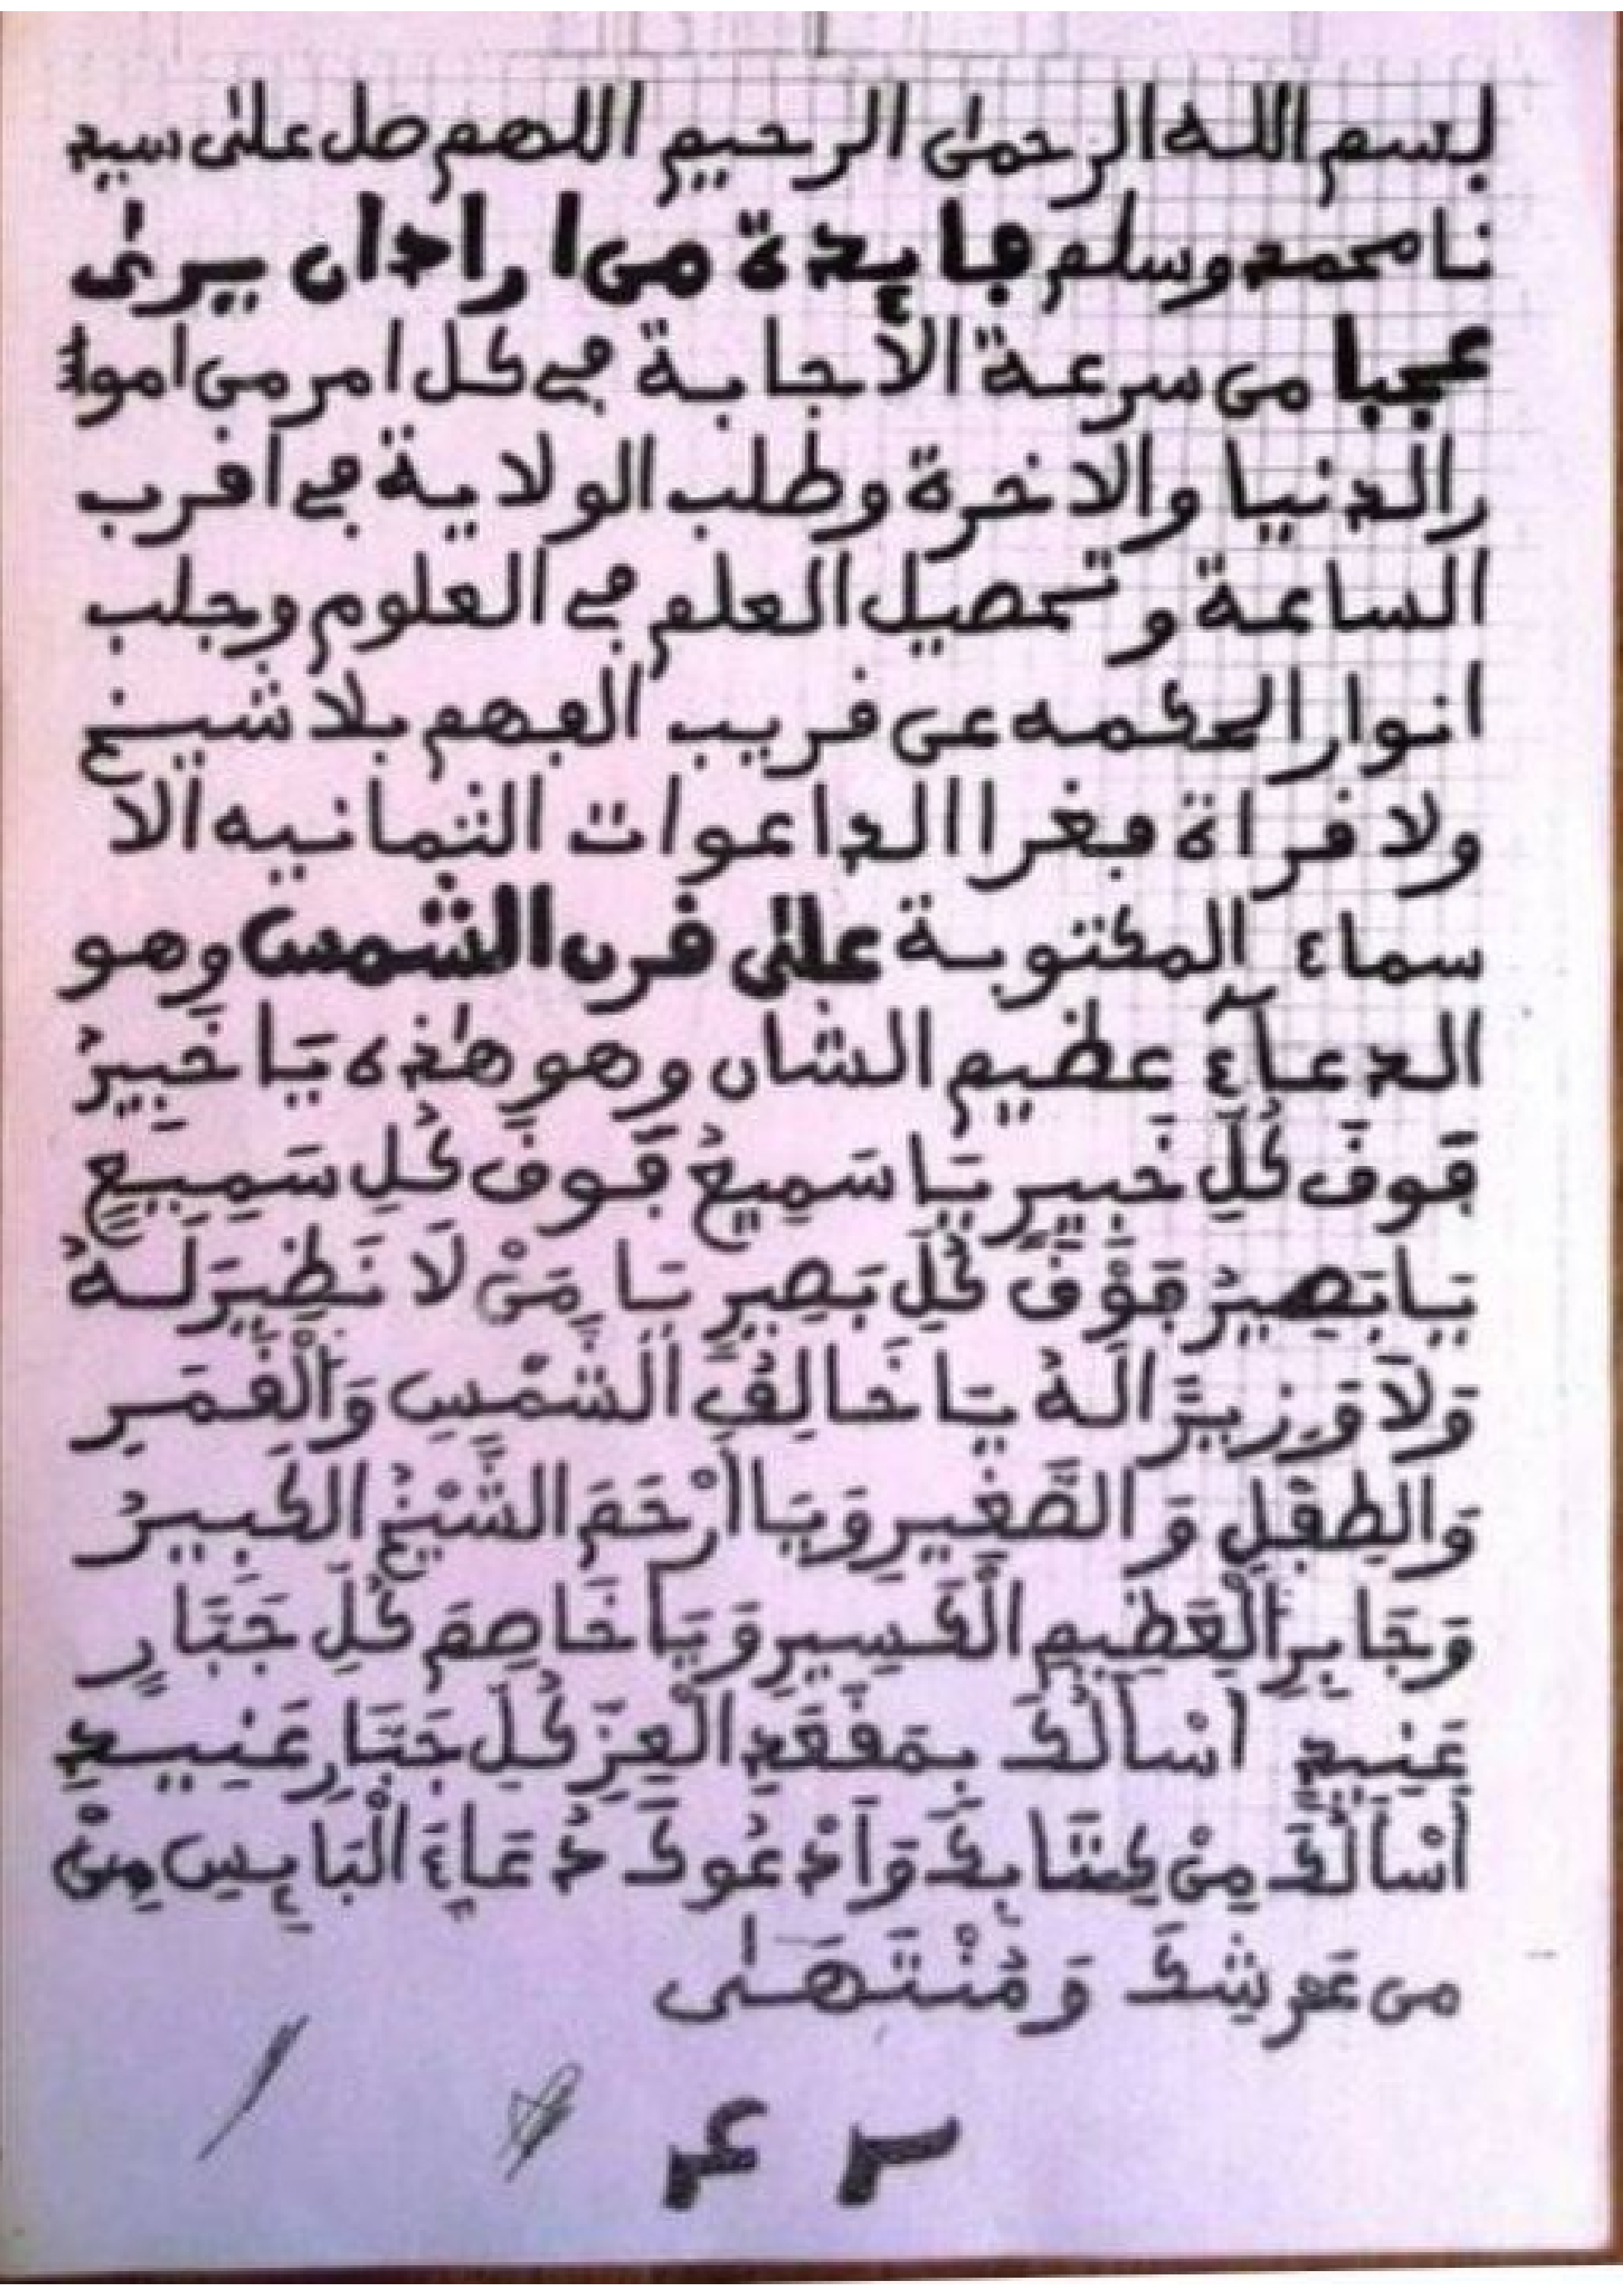 بسم الله الرحمن الرحيم اللهم صل على سيد
نا محمد وسلم فايدة من اراد ان يرى
عجبا من سرعة الاجابة في كل امر من امو
ر الدنيا والاخرة وطلب الولاية في اقرب
الساعة وتحصيل العلم في العلوم وجلب
انوار الحكمه عن قريب الفهم بلا شيخ
ولا قراة فيغرا الداعوات الثمانيه الا
سماء المكتوبة على قرن الشمس وهو
الدعآء عظيم الشان وهو هٰذه يَا خَبِيرُ
فَوقَ كُلِّ خَبِيرٍ يَا سَمِيعُ فَوقَ كُلِ سَمِيعٍ
يَا بَصِيرُ فَوْقَ كُلِّ بَصِيرٍ يَا مَنْ لَا نَظِيرَ لَهُ
وَلَا وَزِيرًا لَهُ يَا خَالِقَ الشَّمْسِ وَالْقَمَرِ
وَالطِفْلِ وَالصَّغِيرِ وَيَا أَرْحَمَ الشَّيْخُ الكَبِيرُ
وَجَابِرِ الْعَظِيمِ الْكَسِيرِ وَيَا خَاصِمَ كُلِّ جَبَّارٍ
عَنِيدٍ اَسْاَلُكَ بِمَقْعَدِ الْعِزِّ كُلِّ جَبَّارٍ عَنِيدٍ
اَسْاَلُكَ مِنْ كِتَابِكَ وَاَدْعُوكَ دُعَاءَ الْبَايِسِ مِنْ
من عَرشِكَ وَمُنْتَهَى
٢٤